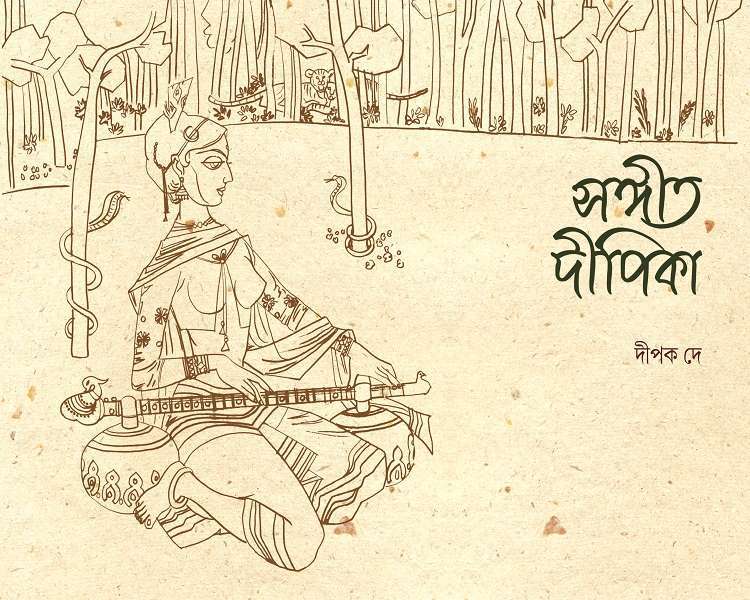 সঙ্গীত
দীপিকা
দীপক দে